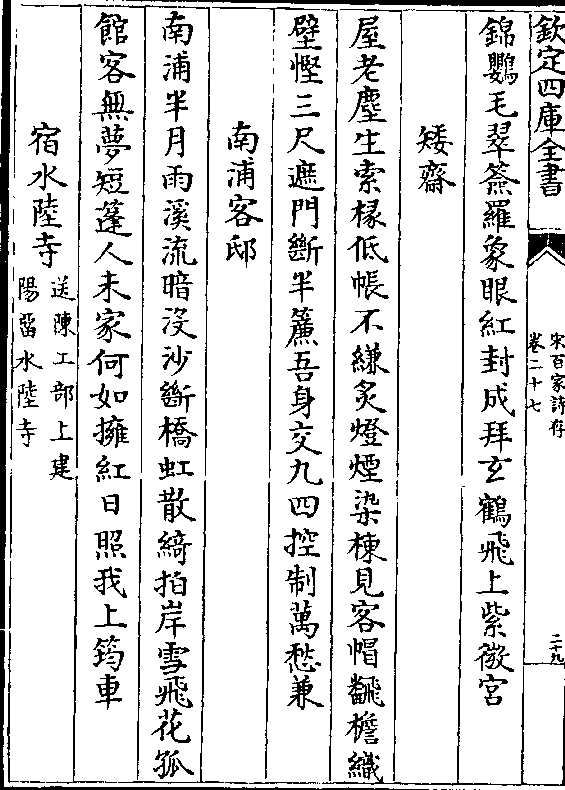 欽定四庫全書
宋百家詩存
卷二十七
二十九
錦鸚毛翠簽羅象眼紅封成拜玄鶴飛上紫微宮
矮齋
屋老塵生索椽低帳不縑炙燈煙染棟見客帽飜檐織
壁慳三尺遮門斷半簾吾身交九四控制萬愁兼
南浦客邸
南浦半月雨溪流暗沒沙斷橋虹散綺拍岸雪飛花孤
館客無夢短蓬人未家何如擁紅日照我上筠車
宿水陸寺
送陳工部上建
陽留水陸寺